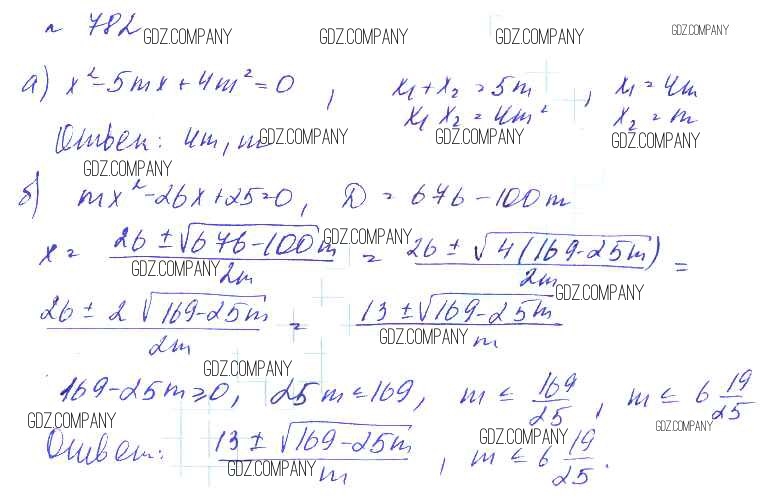 № 782
GDZ.COMPANY GDZ.COMPANY GDZ.COMPANY GDZ.COMPANY
а) x² - 5mx + 4m² = 0 , x₁ + x₂ = 5m , x₁ = 4m
x₁ x₂ = 4m² x₂ = m
Ответ: 4m, m GDZ.COMPANY GDZ.COMPANY GDZ.COMPANY
GDZ.COMPANY
б) mx² - 26x + 25 = 0, D = 676 - 100m
x = (26 ± √(676 - 100m))/(2m) = (26 ± √(4(169 - 25m)))/(2m) =
GDZ.COMPANY GDZ.COMPANY GDZ.COMPANY
(26 ± 2√(169 - 25m))/(2m) = (13 ± √(169 - 25m))/m
GDZ.COMPANY
GDZ.COMPANY
169 - 25m ≥ 0, 25m ≤ 169, m ≤ 169/25, m ≤ 6 19/25
GDZ.COMPANY GDZ.COMPANY GDZ.COMPANY
Ответ: (13 ± √(169 - 25m))/m, m ≤ 6 19/25.
GDZ.COMPANY